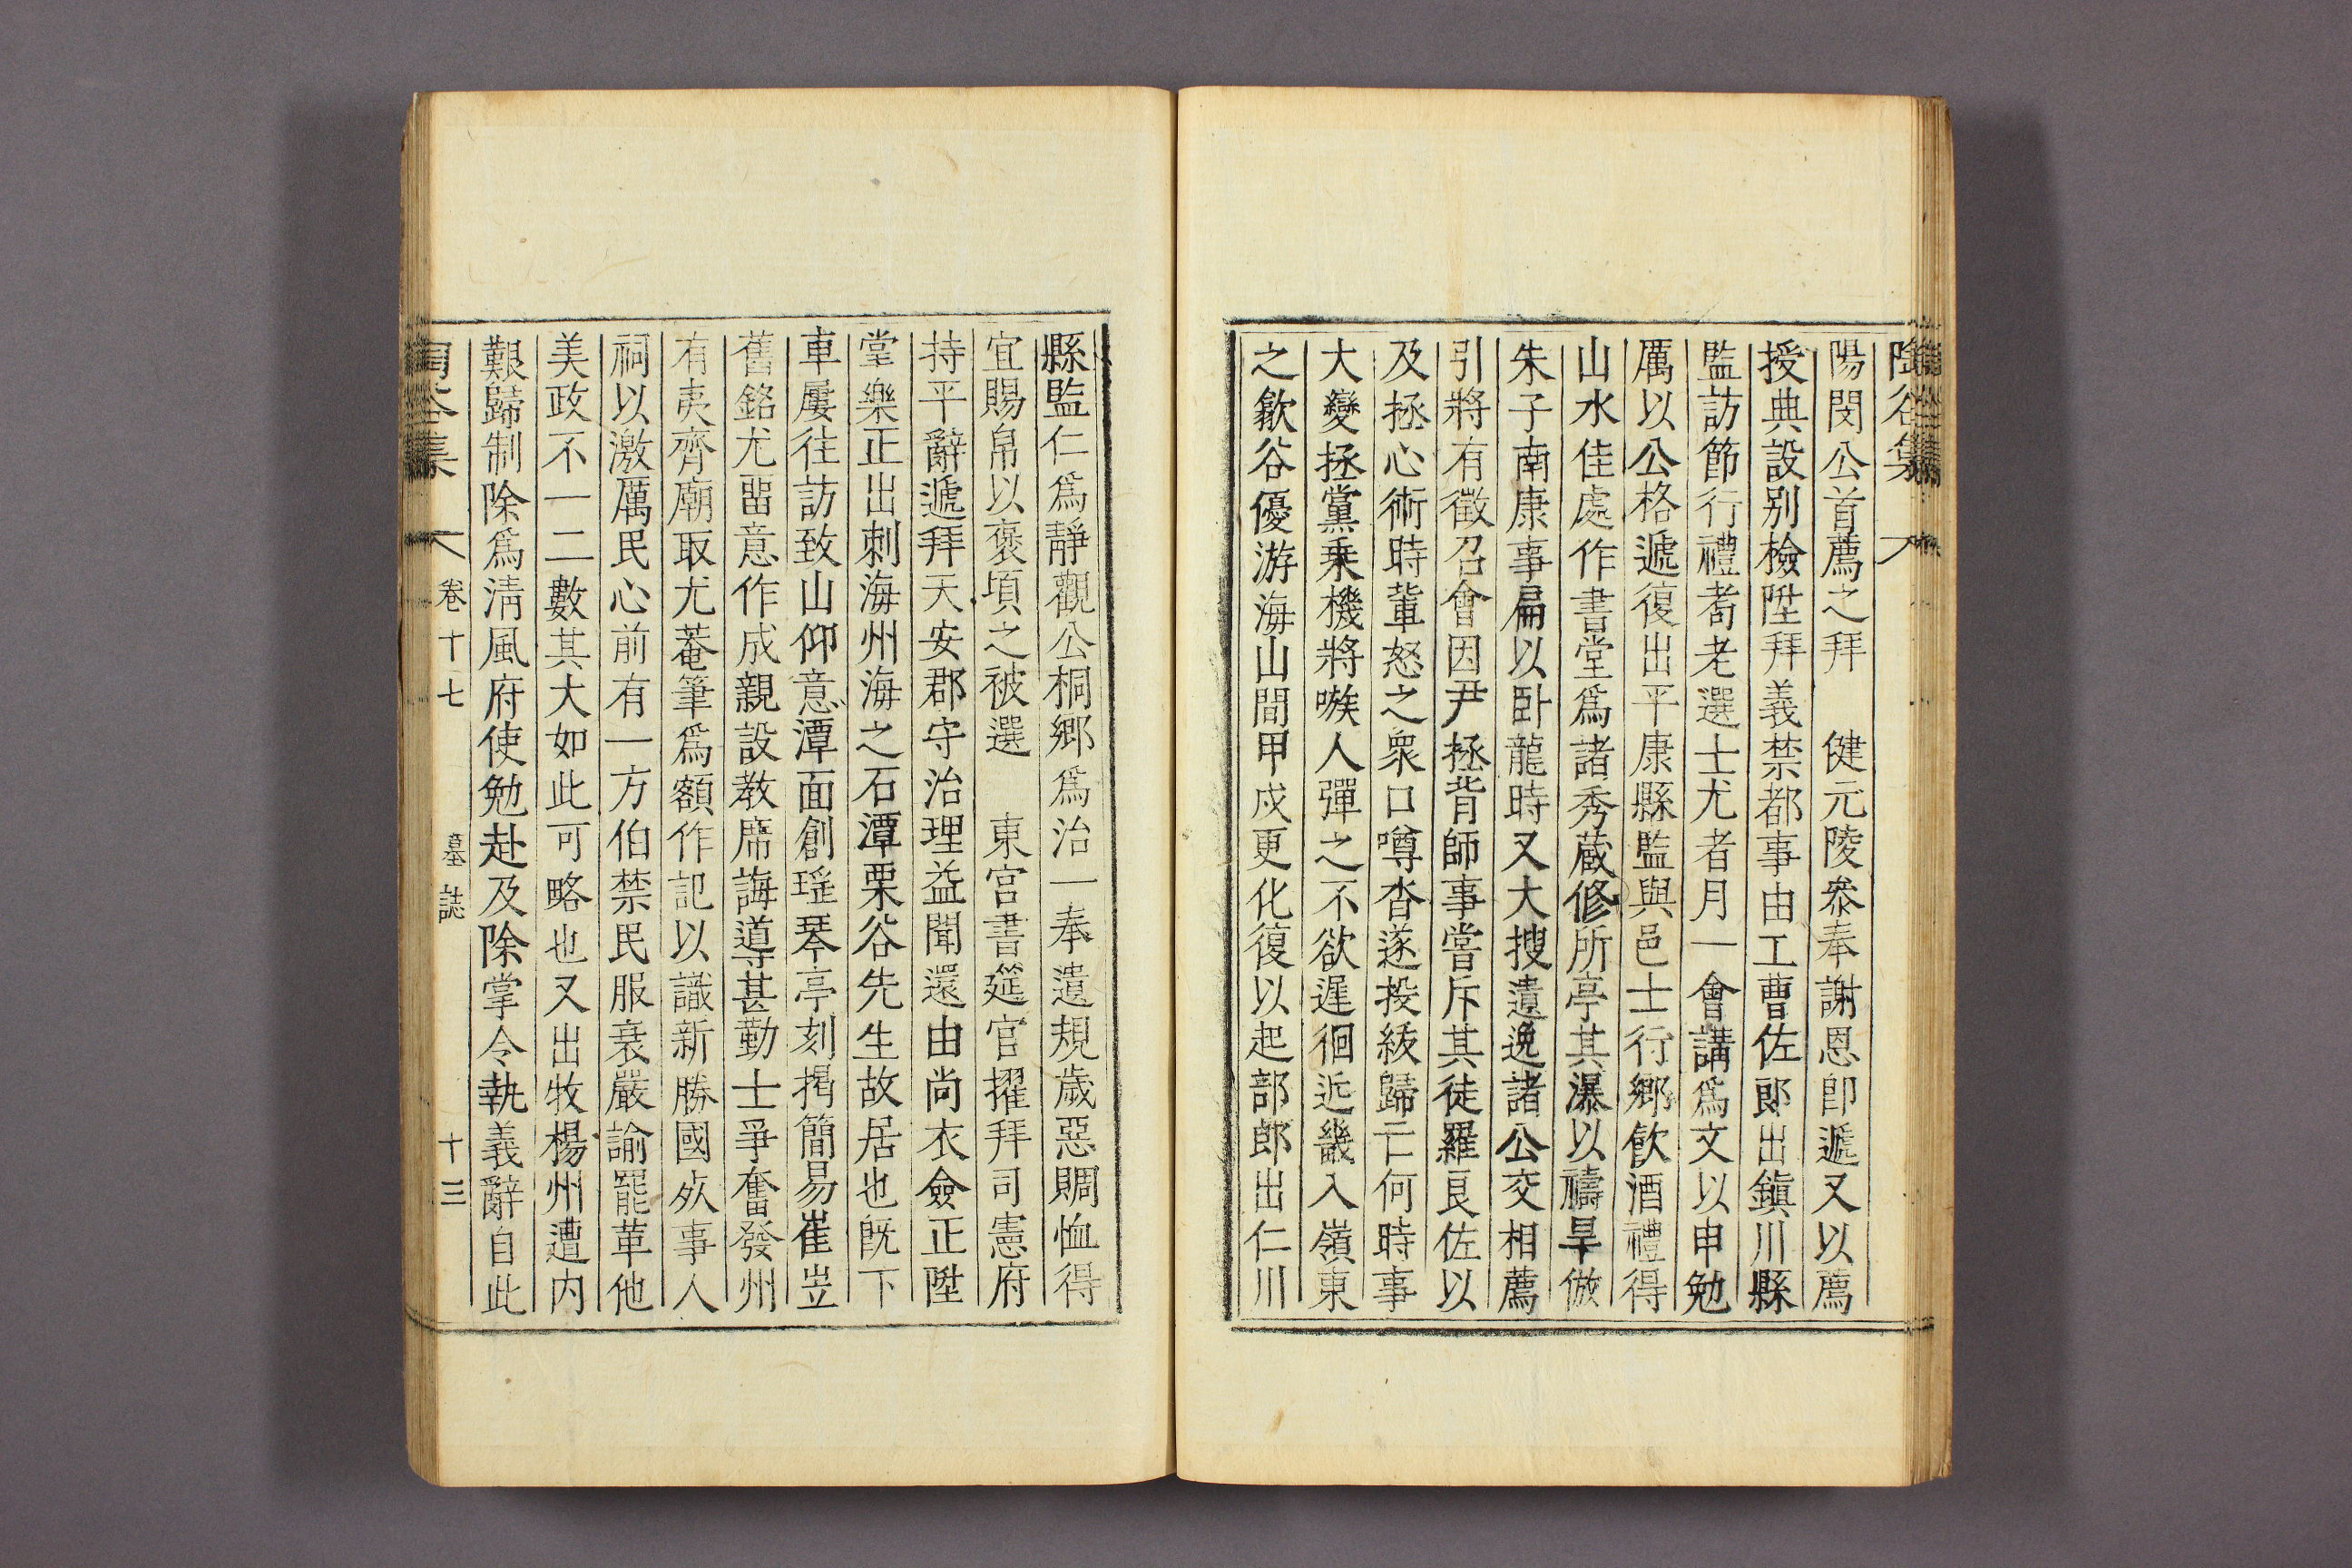 陶谷集
陽閔公首薦之拜　健元陵叅奉謝恩卽遞又以薦
授典設別檢陞拜義禁都事由工曹佐郞出鎭川縣
監訪節行禮耆老選士尤者月一會講爲文以申勉
厲以公格遞復出平康縣監與邑士行鄕飮酒禮得
山水佳處作書堂爲諸秀蔵修所亭其瀑以禱旱倣
朱子南康事扁以卧龍時又大搜遺逸諸公交相薦
引將有徵召會因尹拯背師事嘗斥其徒羅良佐以
及拯心術時軰怒之衆口噂沓遂投紱歸亡何時事
大變拯黨乗機將嗾人彈之不欲遲徊近畿入嶺東
之歙谷優游海山間甲戍更化復以起部郎出仁川
縣監仁爲靜觀公桐鄕爲治一奉遺規歲惡賙恤得
宜賜帛以褒頃之被選　東宮書筵官擢拜司憲府
持平辭遞拜天安郡守治理益聞還由尙衣僉正陞
掌樂正出刺海州海之石潭栗谷先生故居也旣下
車屢往訪致山仰意潭面創瑶琴亭刻揭簡易崔岦
舊銘尤留意作成親設教席誨導甚勤士爭奮發州
有夷齊廟取尤菴筆爲額作記以識新勝國死事人
祠以激厲民心前有一方伯禁民服衰嚴諭罷革他
美政不一二數其大如此可略也又出牧楊州遭內
艱歸制除爲淸風府使勉赴及除掌令執義辭自此
陶谷集　卷十七　墓誌　十三